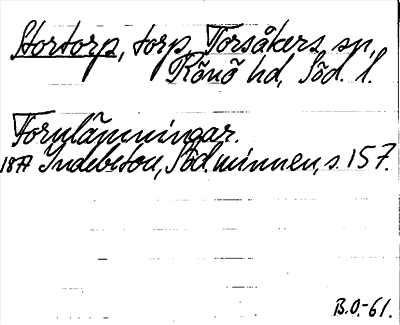 Stortorp, torp, Torsåkers sn,
Rönö hd, Söd. l.
Fornlämningar.
1877 Indebetou, Söd. minnen, s. 157.
B.O.-61.